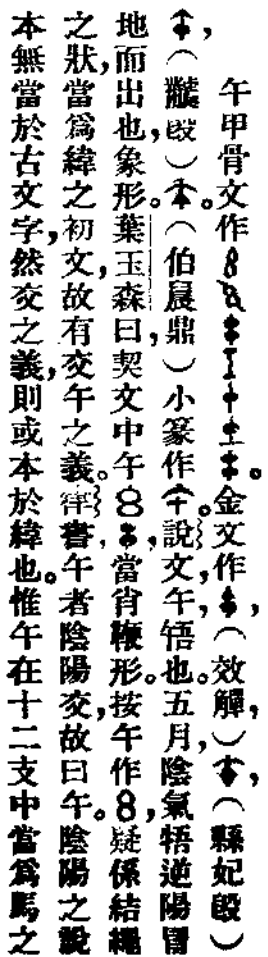 午甲骨文作。金文作,(效觶,),(縣妃㲃)
,(㲃)。(伯㫳鼎)小篆作。說文,午,啎也。五月,陰氣牾逆陽冒
地而出也,象形。葉玉森曰,契文中午,當肖鞭形。按午作,疑係結繩
之狀,當爲緯之初文,故有交午之義。書,午者陰陽交,故曰午。陰陽之說
本無當於古文字,然交之義,則或本於緯也。惟午在十二支中當爲馬之